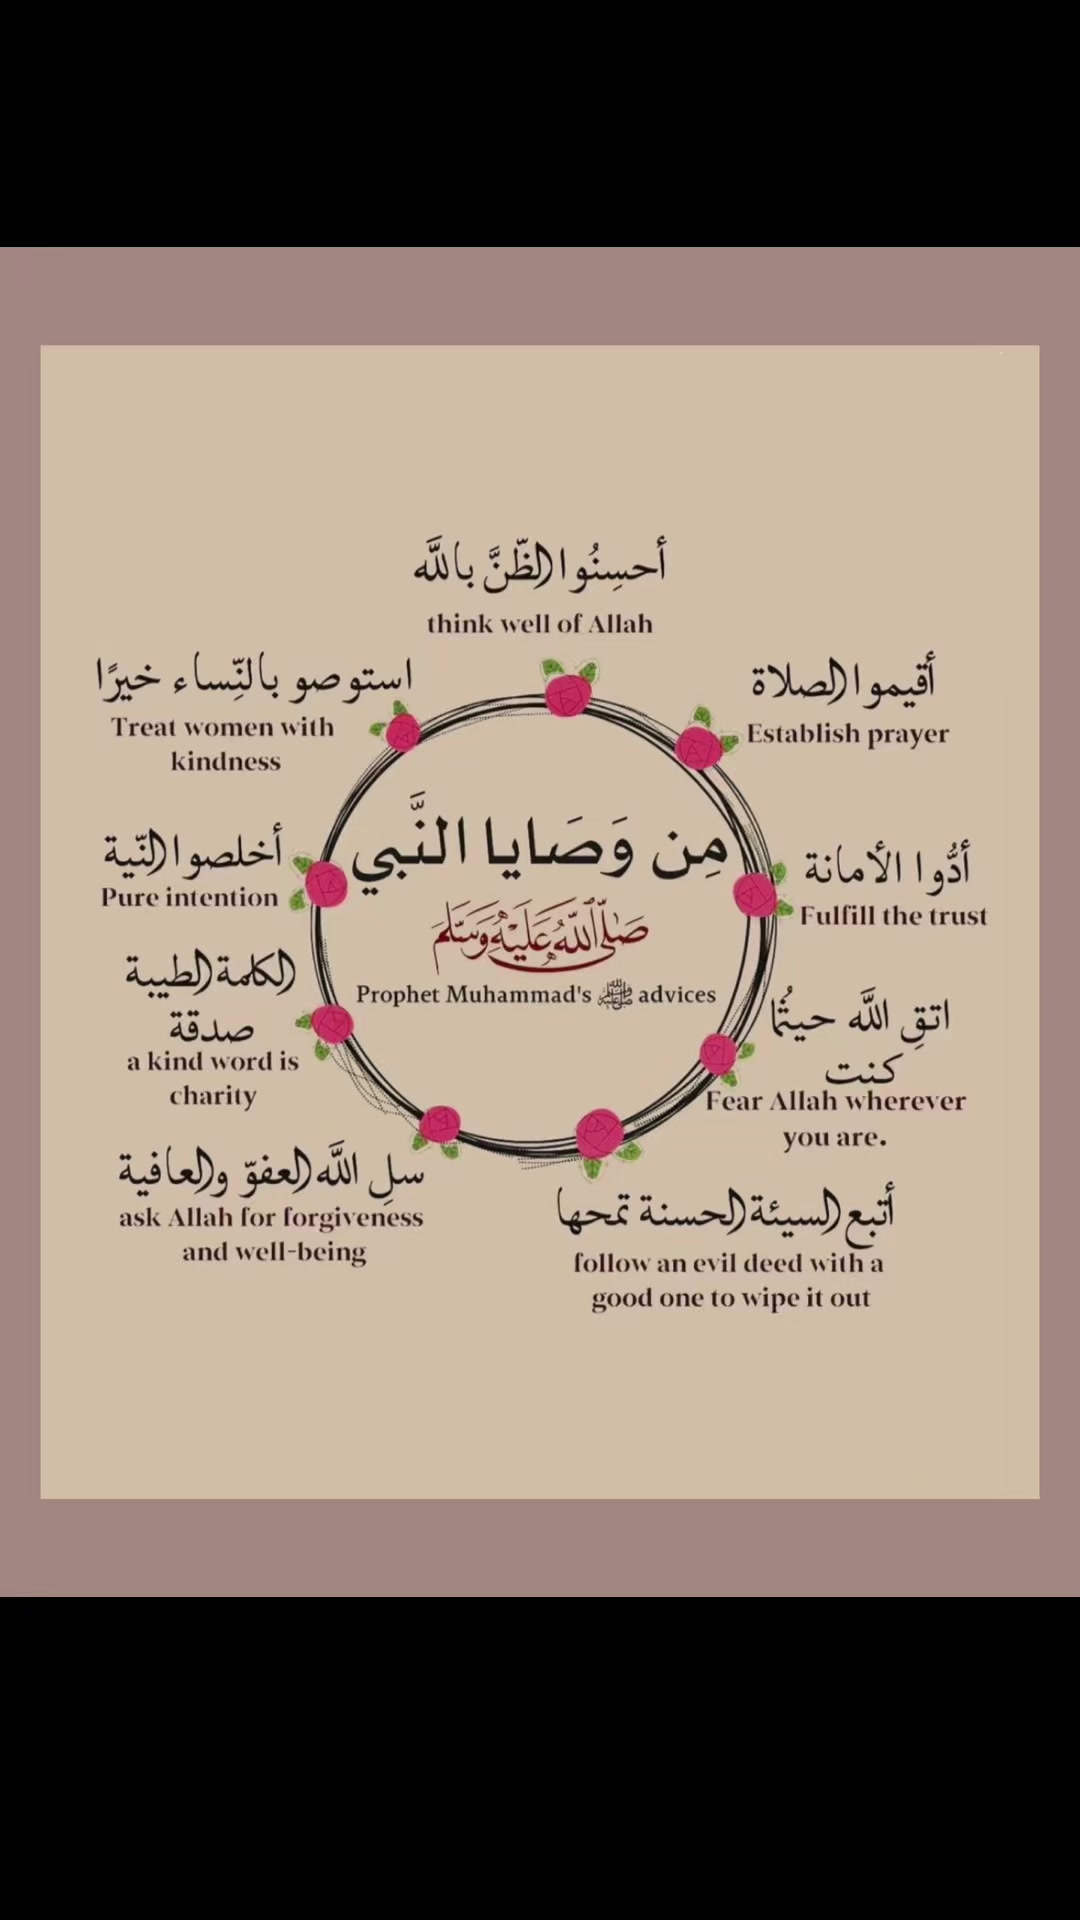 أحسِنُوا الظّنَّ باللَّه
think well of Allah
استوصو بالنِّساء خيرًا
Treat women with
kindness
أقيموا الصلاة
Establish prayer
مِن وَصَايا النَّبي
صَلَّى اللَّهُ عَلَيْهِ وَسَلَّمَ
Prophet Muhammad's ﷺ advices
أخلصوا النّية
Pure intention
أدُّوا الأمانة
Fulfill the trust
الكلمة الطيبة
صدقة
a kind word is
charity
اتقِ اللَّه حيثُما
كنت
Fear Allah wherever
you are.
سلِ اللَّه العفوّ والعافية
ask Allah for forgiveness
and well-being
أتبع السيئة الحسنة تمحها
follow an evil deed with a
good one to wipe it out